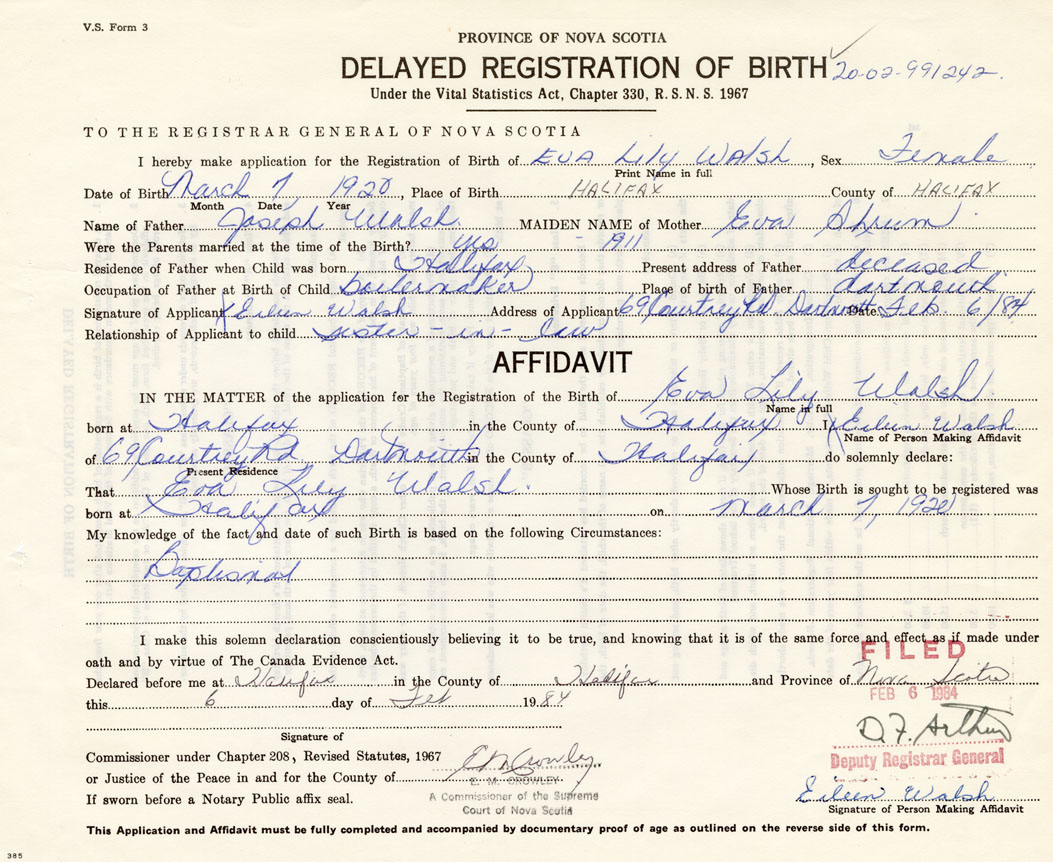 V.S. Form 3
PROVINCE OF NOVA SCOTIA
DELAYED REGISTRATION OF BIRTH 20-02-991242.
Under the Vital Statistics Act, Chapter 330, R.S.N.S. 1967
TO THE REGISTRAR GENERAL OF NOVA SCOTIA
I hereby make application for the Registration of Birth of EVA Lily WALSH, Sex Female
Print Name in full
Date of Birth March 7, 1920, Place of Birth HALIFAX County of HALIFAX
Month Date Year
Name of Father Joseph Walsh MAIDEN NAME of Mother Eva Shrum
Were the Parents married at the time of the Birth? yes - 1911
Residence of Father when Child was born Halifax Present address of Father deceased
Occupation of Father at Birth of Child boilermaker Place of birth of Father dartmouth
Signature of Applicant Eileen Walsh Address of Applicant 69 Courtney Rd. Dartmouth Date Feb. 6/84
Relationship of Applicant to child sister-in-law
AFFIDAVIT
IN THE MATTER of the application for the Registration of the Birth of Eva Lily Walsh
Name in full
born at Halifax in the County of Halifax I, Eileen Walsh
Name of Person Making Affidavit
of 69 Courtney Rd Dartmouth in the County of Halifax do solemnly declare:
Present Residence
That Eva Lily Walsh. Whose Birth is sought to be registered was
born at Halifax on March 7, 1920
My knowledge of the fact and date of such Birth is based on the following Circumstances:
Baptismal
I make this solemn declaration conscientiously believing it to be true, and knowing that it is of the same force and effect as if made under
oath and by virtue of The Canada Evidence Act.
FILED
Declared before me at Halifax in the County of Halifax and Province of Nova Scotia
FEB 6 1984
this 6 day of Feb 1984
D.F. Arthur
Signature of
Commissioner under Chapter 208, Revised Statutes, 1967 E M Crowley
Deputy Registrar General
or Justice of the Peace in and for the County of
E. M. CROWLEY
If sworn before a Notary Public affix seal. A Commissioner of the Supreme
Court of Nova Scotia
Eileen Walsh
Signature of Person Making Affidavit
This Application and Affidavit must be fully completed and accompanied by documentary proof of age as outlined on the reverse side of this form.
385